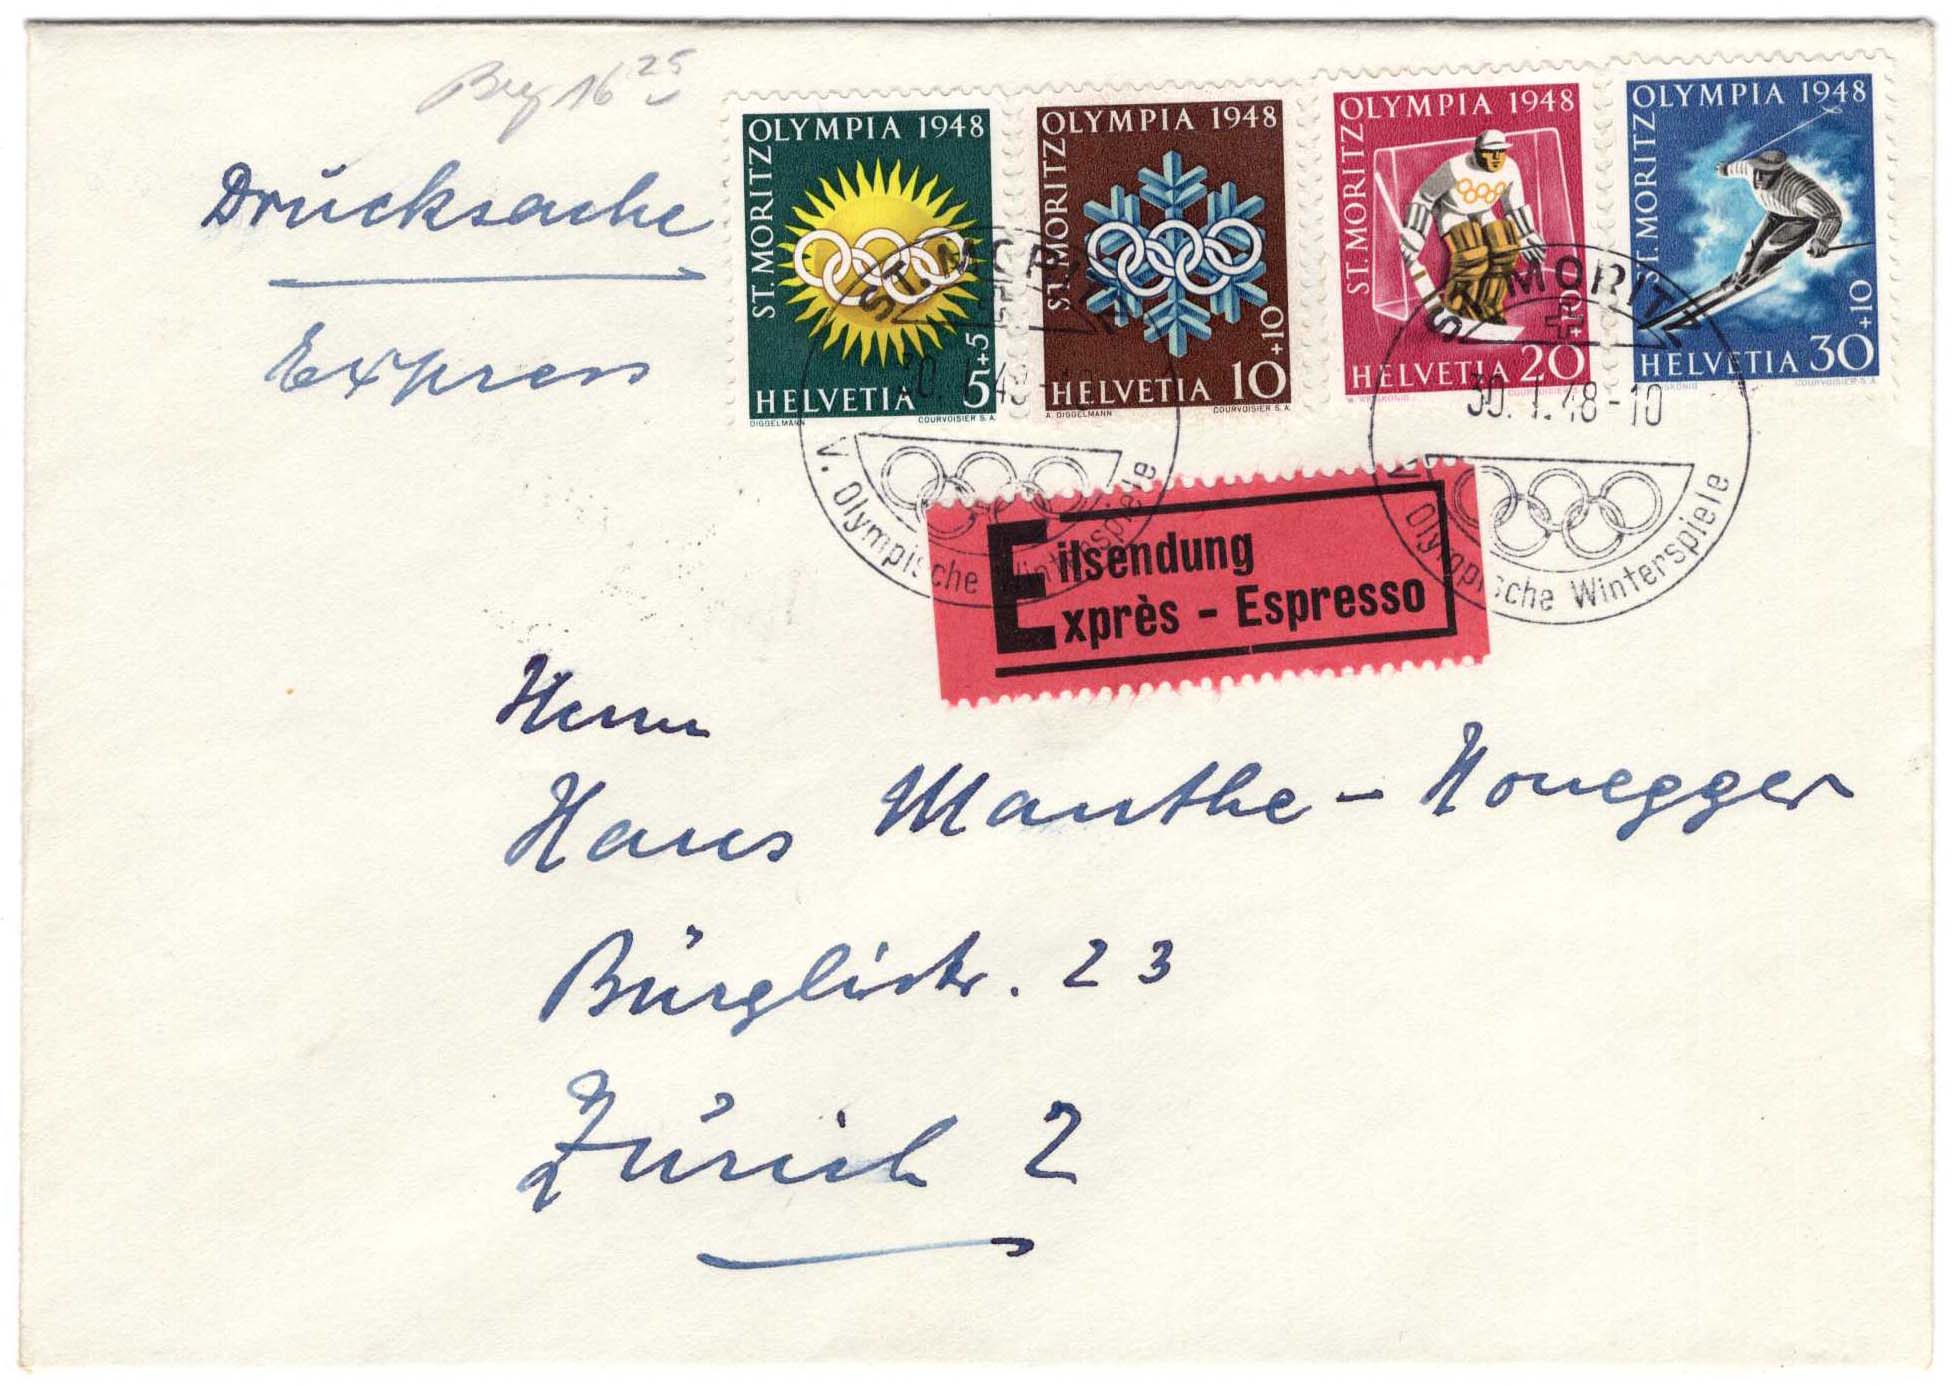 Brg 16 25
Drucksache
Express
OLYMPIA 1948
ST. MORITZ
5+5
HELVETIA
DIGGELMANN
COURVOISIER S.A.
OLYMPIA 1948
ST. MORITZ
10+10
HELVETIA
A. DIGGELMANN
COURVOISIER S.A.
OLYMPIA 1948
ST. MORITZ
HELVETIA 20
OLYMPIA 1948
ST. MORITZ
30+10
HELVETIA
COURVOISIER S.A.
ST. MORITZ
V. Olympische Winterspiele
ST. MORITZ
30.1.48-10
V. Olympische Winterspiele
Eilsendung
Exprès - Espresso
Herrn
Hans Manthe - Honegger
Bürglistr. 23
Zürich 2